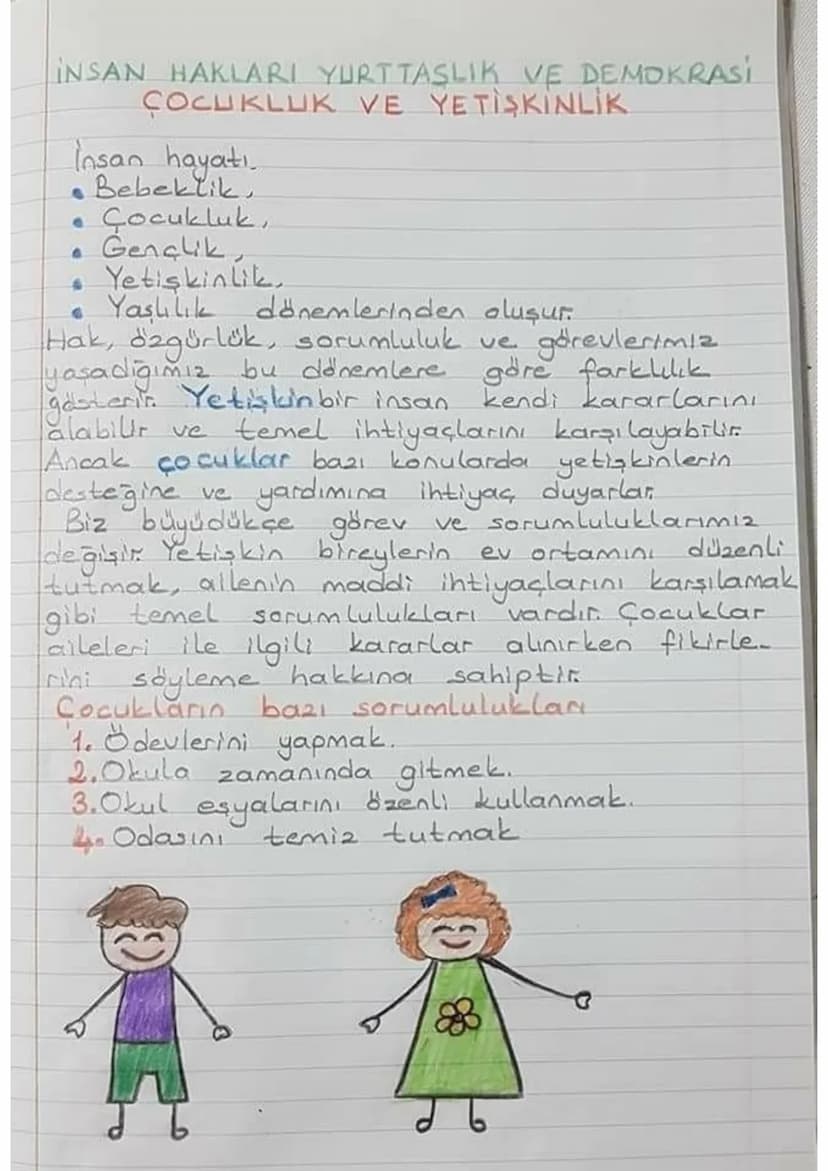 İNSAN HAKLARI YURTTAŞLIK VE DEMOKRASİ
ÇOCUKLUK VE YETİŞKİNLİK
İnsan hayatı
• Bebeklik,
• Çocukluk,
• Gençlik,
• Yetişkinlik,
• Yaşlılık dönemlerinden oluşur.
Hak, özgürlük, sorumluluk ve görevlerimiz
yaşadığımız bu dönemlere göre farklılık
gösterir. Yetişkin bir insan kendi kararlarını
alabilir ve temel ihtiyaçlarını karşılayabilir.
Ancak çocuklar bazı konularda yetişkinlerin
desteğine ve yardımına ihtiyaç duyarlar.
Biz büyüdükçe görev ve sorumluluklarımız
değişir. Yetişkin bireylerin ev ortamını düzenli
tutmak, ailenin maddi ihtiyaçlarını karşılamak
gibi temel sorumlulukları vardır. Çocuklar
aileleri ile ilgili kararlar alınırken fikirle-
rini söyleme hakkına sahiptir.
Çocukların bazı sorumlulukları
1. Ödevlerini yapmak.
2. Okula zamanında gitmek.
3. Okul eşyalarını özenli kullanmak.
4. Odasını temiz tutmak